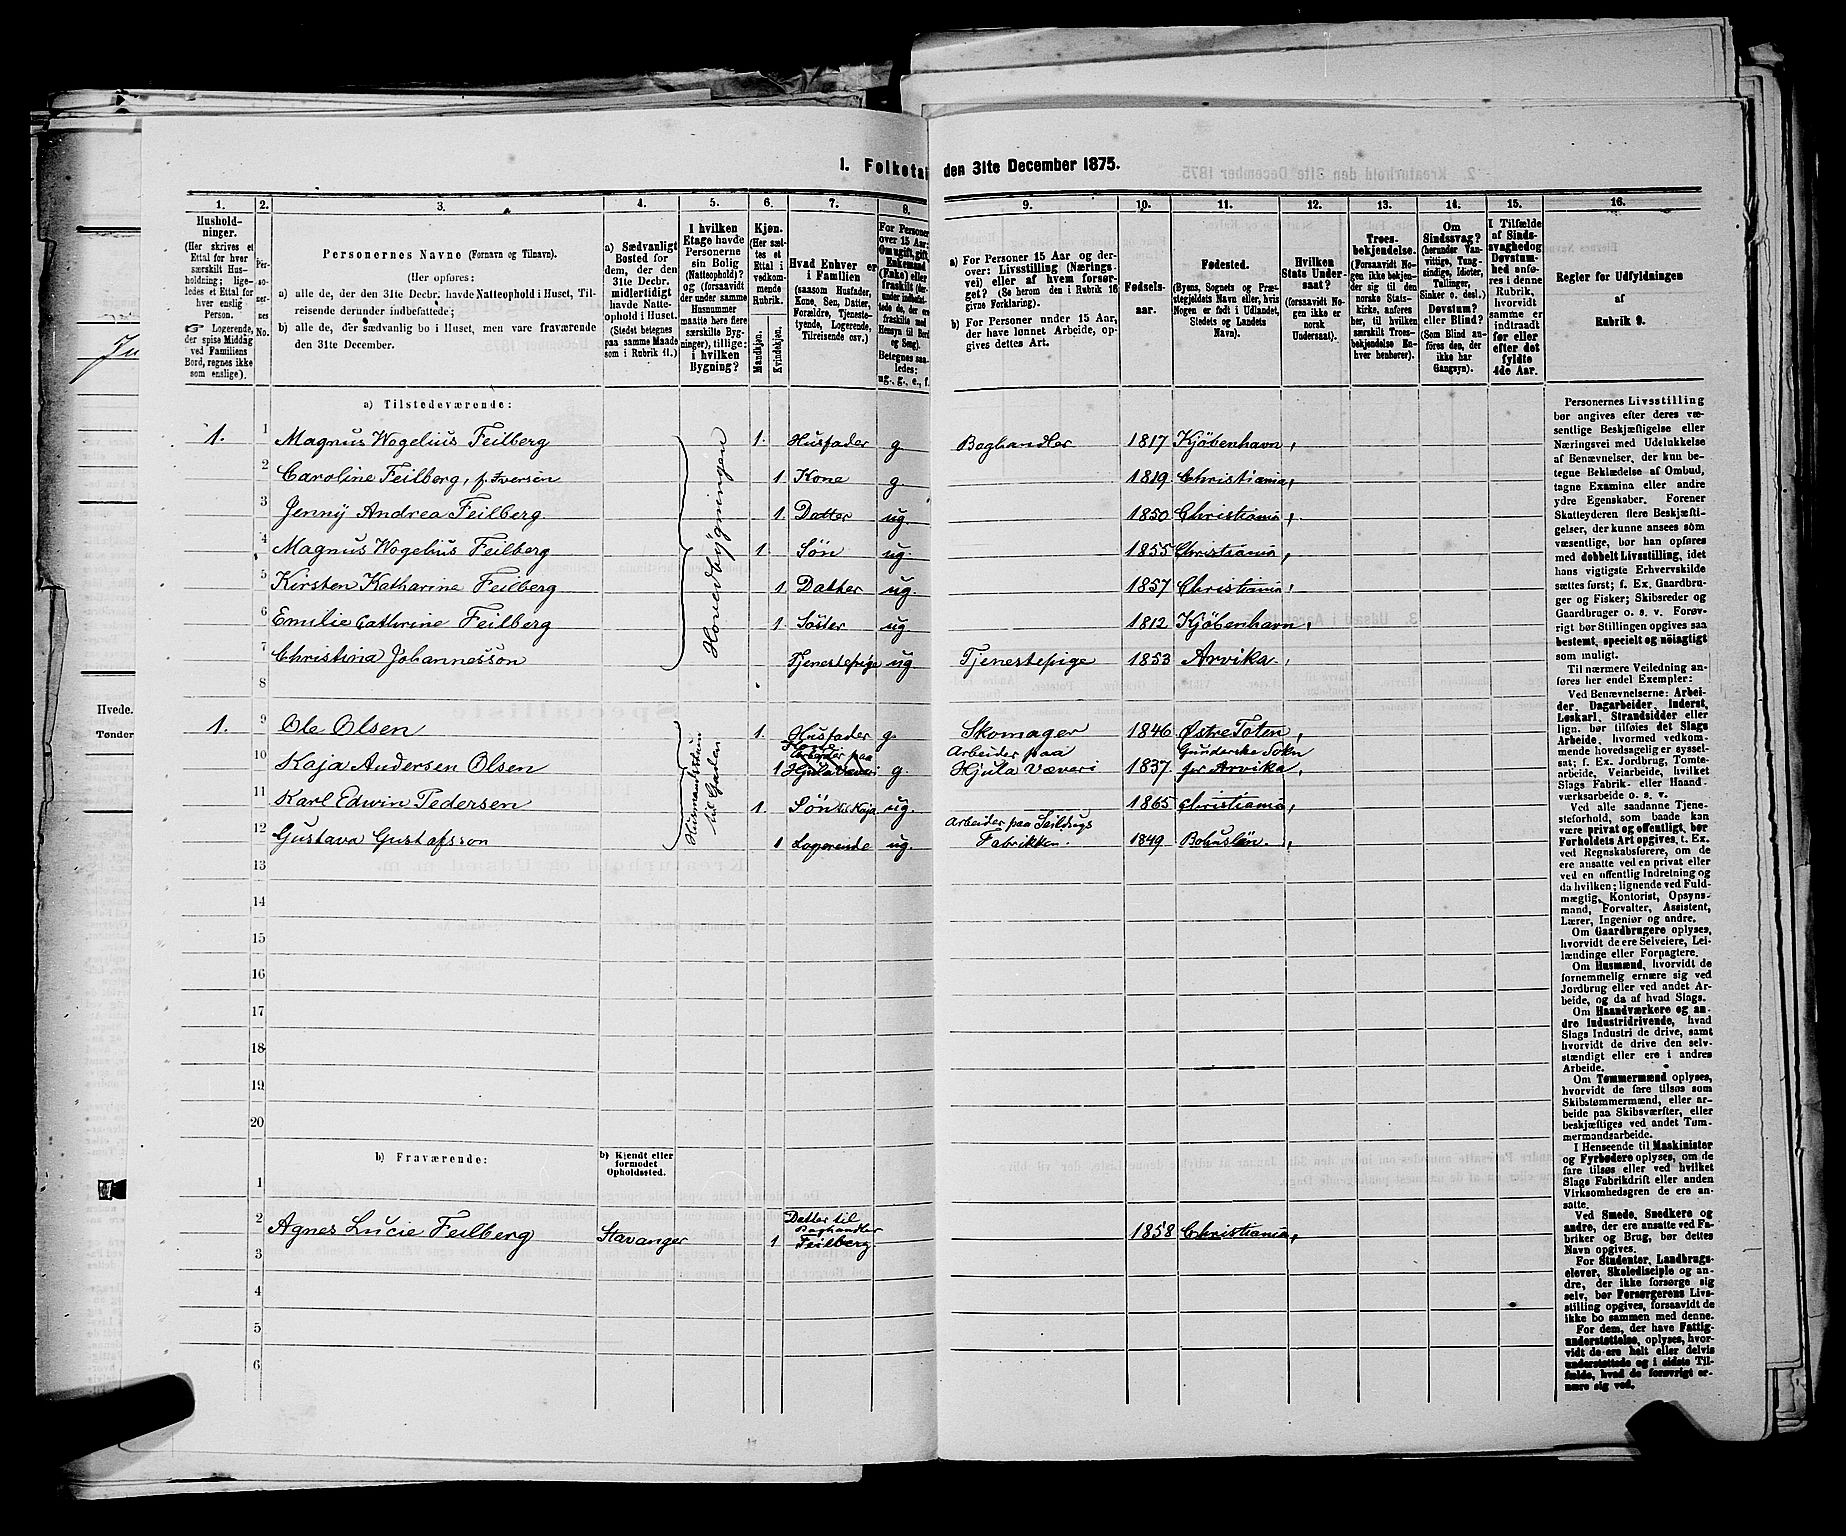 1. Folketæl
den 31te December 1875.
1. 2. 3. 4. 5. 6. 7. 8. 9. 10. 11. 12. 13. 14. 15. 16.
Hushold-
ninger.
(Her skrives et
Ettal for hver
særskilt Hus-
holdning; lige-
ledes et Ettal for
hver enslig
Person.
☞ Logerende,
der spise Middag
ved Familiens
Bord, regnes ikke
som enslige).
Per-
so-
ner-
nes
No.
Personernes Navne (Fornavn og Tilnavn).
(Her opføres:
a) alle de, der den 31te Decbr. havde Natteophold i Huset, Til-
reisende derunder indbefattede;
b) alle de, der sædvanlig bo i Huset, men vare fraværende
den 31te December.
a) Sædvanligt
Bosted for
dem, der den
31te Decbr.
midlertidigt
havde Natte-
ophold i Huset.
(Stedet betegnes
paa samme Maade
som i Rubrik 11.)
I hvilken
Etage havde
Personerne
sin Bolig
(Natteophold)?
og (forsaavidt
der under samme
Husnummer
maatte høre flere
særskilte Byg-
ninger), tillige:
i hvilken
Bygning?
Kjøn.
(Her sæt-
tes et
Ettal i
vedkom-
mende
Rubrik.
Mandkjøn.
Kvindekjøn.
Hvad Enhver er
i Familien
(saasom Husfader,
Kone, Søn, Datter,
Forældre, Tjeneste-
tyende, Logerende,
Tilreisende osv.)
For Personer
over 15 Aar:
Om ugift, gift,
Enkemand
(Enke) eller
fraskilt (der-
under indbefat-
tede de, der ere
fraskilte med
Hensyn til Bord
og Seng).
Betegnes saa-
ledes:
ug., g., e., f.
a) For Personer 15 Aar og der-
over: Livsstilling (Nærings-
vei) eller af hvem forsør-
get? (Se herom den i Rubrik 16
givne Forklaring).
b) For Personer under 15 Aar,
der have lønnet Arbeide, op-
gives dettes Art.
Fødsels-
aar.
Fødested.
(Byens, Sognets og Præ-
stegjeldets Navn eller, hvis
Nogen er født i Udlandet,
Stedets og Landets
Navn).
Hvilken
Stats Under-
saat?
(forsaavidt No-
gen ikke er
norsk
Undersaat).
Troes-
bekjendelse.
(Forsaavidt No-
gen ikke bekjen-
der sig til den
norske Stats-
kirke, anføres
her, til hvilken
særskilt Troes-
bekjendelse En-
hver henhører).
Om
Sindssvag?
(herunder Van-
vittige, Tung-
sindige, Idioter,
Sinker o. desl.)
Døvstum?
eller Blind?
(Som Blind an-
føres den, der
ikke har
Gangsyn).
I Tilfælde
af Sinds-
svaghed og
Døvstum-
hed anfø-
res i denne
Rubrik,
hvorvidt
samme er
indtraadt
før eller
efter det
fyldte
4de Aar.
Regler for Udfyldningen
af
Rubrik 9.
a) Tilstedeværende:
1. 1 Magnus Wogelius Feilberg 1. Husfader g Boghandler 1817 Kjøbenhavn,
2 Caroline Feilberg, f. Iversen 1 Kone g 1819 Christiania,
3 Jenny Andrea Feilberg 1. Datter ug. 1850 Christiania,
4 Magnus Wogelius Feilberg 1. Søn ug 1855 Christiania,
5 Kirsten Katharine Feilberg 1 Datter ug. 1857 Christiania,
6 Emilie Cathrine Feilberg 1. Søster ug 1812 Kjøbenhavn,
7 Christina Johannesson Tjenestepige ug Tjenestepige 1853 Arvika.
Hovedbygningen
8
1. 9 Ole Olsen 1. Husfader g Skomager 1846 Østre Toten,
10 Kaja Andersen Olsen 1 Kone Arbeider paa Hjula Væveri g. Arbeider paa Hjula Væveri 1837. Gunderske Sokn pr Arvika,
11 Karl Edwin Pedersen 1. Søn til Kaja ug. 1865 Christiania,
12 Gustava Gustafsson 1 Logerende ug. Arbeider paa Seildugs Fabrikken. 1849 Bohuslän.
til Gaden
13
14
15
16
17
18
19
20
b) Fraværende:
b) Kjendt eller
formodet
Opholdssted.
1
2 Agnes Lucie Feilberg Stavanger 1 Datter til Boghandler Feilberg 1858 Christiania,
3
4
5
6
Personernes Livsstilling
bør angives efter deres væ-
sentlige Beskjæftigelse eller
Næringsvei med Udelukkelse
af Benævnelser, der kun be-
tegne Beklædelse af Ombud,
tagne Examina eller andre
ydre Egenskaber. Forener
Skatteyderen flere Beskjæfti-
gelser, der kunne ansees som
væsentlige, bør han opføres
med dobbelt Livsstilling, idet
hans vigtigste Erhvervskilde
sættes først; f. Ex. Gaardbru-
ger og Fisker; Skibsreder og
Gaardbruger o. s. v. Forøv-
rigt bør Stillingen opgives saa
bestemt, specielt og nöiagtigt
som muligt.
Til nærmere Veiledning an-
føres her endel Exempler:
Ved Benævnelserne: Arbei-
der, Dagarbeider, Inderst,
Løskarl, Strandsidder eller
lign. bør tilføies det Slags
Arbeide, hvormed vedkom-
mende hovedsagelig er syssel-
sat; f. Ex. Jordbrug, Tomte-
arbeide, Veiarbeide, hvilket
Slags Fabrik- eller Haand-
værksarbeide o. s. v.
Ved alle saadanne Tjene-
steforhold, som baade kan
være privat og offentligt, bør
Forholdets Art opgives, t. Ex.
ved Regnskabsførere, om de
ere ansatte ved en privat eller
ved en offentlig Indretning og
da hvilken; lignende ved Fuld-
mægtig, Kontorist, Opsyns-
mand, Forvalter, Assistent,
Lærer, Ingeniør og andre.
Om Gaardbrugere oplyses,
hvorvidt de ere Selveiere, Lei-
lændinge eller Forpagtere.
Om Husmænd, hvorvidt de
fornemmelig ernære sig ved
Jordbrug eller ved andet Ar-
beide, og da af hvad Slags.
Om Haandværkere og an-
dre Industridrivende, hvad
Slags Industri de drive, samt
hvorvidt de drive den selv-
stændigt eller ere i andres
Arbeide.
Om Tømmermænd oplyses,
hvorvidt de fare tilsøs som
Skibstømmermænd, eller ar-
beide paa Skibsværfter, eller
beskjæftiges ved andet Tøm-
mermandsarbeide.
I Henseende til Maskinister
og Fyrbødere oplyses, om de
fare tilsøs eller ved hvilket
Slags Fabrikdrift eller anden
Virksomhedsgren de ere an-
satte.
Ved Smede, Snedkere og
andre, der ere ansatte ved Fa-
briker og Brug, bør dettes
Navn opgives.
For Studenter, Landbrugs-
elever, Skoledisciple og an-
dre, der ikke forsørge sig
selv, bør Forsørgerens Livs-
stilling opgives, forsaavidt de
ikke bo sammen med denne.
For dem, der have Fattig-
understøttelse, oplyses, hvor-
vidt de ere helt eller delvis
understøttede og i sidste Til-
fælde, hvad de forøvrigt er-
nære sig ved.
Hvede.
Tønder